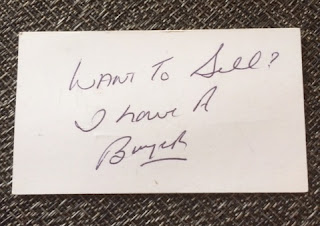 WANT TO Sell?
I have A
Buyer